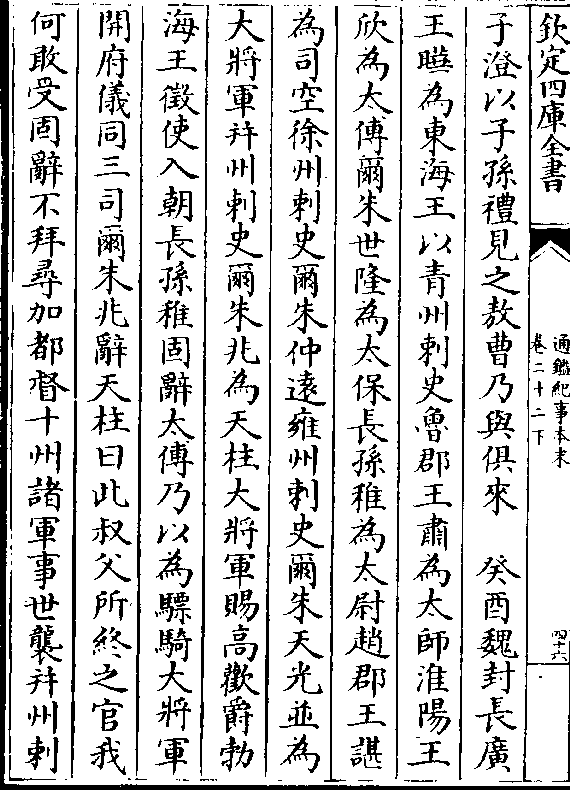 欽定四庫全書
通鑑紀事本末
卷二十二下
四十六
子澄以子孫禮見之敖曹乃與俱來　癸酉魏封長廣
王曄為東海王以青州刺史魯郡王肅為太師淮陽王
欣為太傅爾朱世隆為太保長孫稚為太尉趙郡王諶
為司空徐州刺史爾朱仲遠雍州刺史爾朱天光並為
大將軍并州刺史爾朱兆為天柱大將軍賜高歡爵勃
海王徵使入朝長孫稚固辭太傅乃以為驃騎大將軍
開府儀同三司爾朱兆辭天柱曰此叔父所終之官我
何敢受固辭不拜尋加都督十州諸軍事世襲并州刺